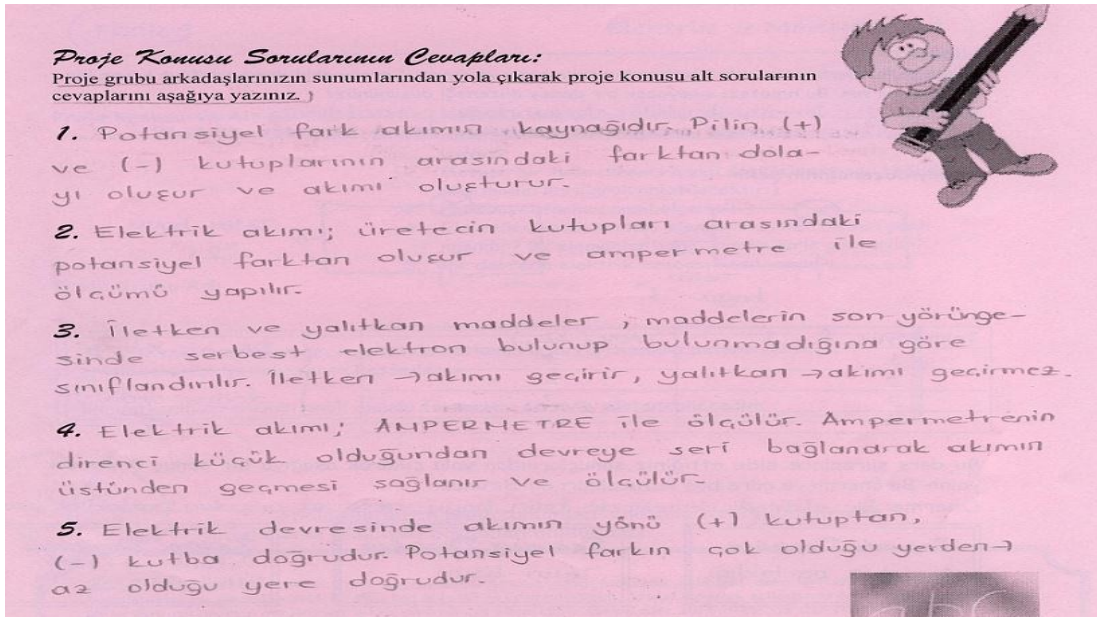 Proje Konusu Sorularının Cevapları:
Proje grubu arkadaşlarınızın sunumlarından yola çıkarak proje konusu alt sorularının
cevaplarını aşağıya yazınız. )
1. Potansiyel fark akımın kaynağıdır. Pilin (+)
ve (-) kutuplarının arasındaki farktan dola-
yı oluşur ve akımı oluşturur.
2. Elektrik akımı; üretecin kutupları arasındaki
potansiyel farktan oluşur ve ampermetre ile
ölçümü yapılır.
3. İletken ve yalıtkan maddeler, maddelerin son yörünge-
sinde serbest elektron bulunup bulunmadığına göre
sınıflandırılır. İletken → akımı geçirir, yalıtkan → akımı geçirmez.
4. Elektrik akımı; AMPERMETRE ile ölçülür. Ampermetrenin
direnci küçük olduğundan devreye seri bağlanarak akımın
üstünden geçmesi sağlanır ve ölçülür.
5. Elektrik devresinde akımın yönü (+) kutuptan,
(-) kutba doğrudur. Potansiyel farkın çok olduğu yerden →
az olduğu yere doğrudur.
abc